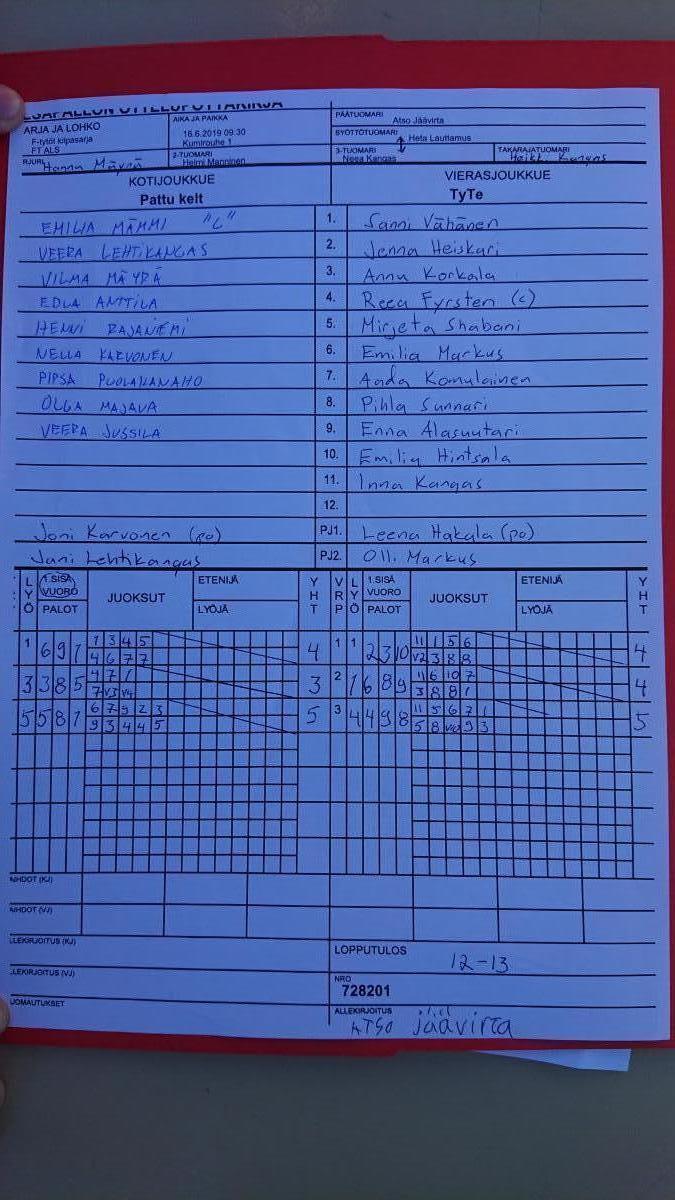 PESÄPALLON OTTELUPÖYTÄKIRJA
ARJA JA LOHKO
F-tytöt kilpasarja
FT ALS
AIKA JA PAIKKA
16.6.2019 09.30
Kumirouhe 1
PÄÄTUOMARI
Atso Jäävirta
SYÖTTÖTUOMARI
Heta Lauttamus
RJURI Hannu Mäyrä
2-TUOMARI
Helmi Manninen
3-TUOMARI
Neea Kangas
TAKARAJATUOMARI
Heikki Kangas
KOTIJOUKKUE
Pattu kelt
VIERASJOUKKUE
TyTe
EMILIA MÄMMI "C" 1. Sanni Vähänen
VEERA LEHTIKANGAS 2. Jenna Heiskari
VILMA MÄYRÄ 3. Annu Korkala
EDLA ANTTILA 4. Reea Fyrsten (c)
HENNI RAJANIEMI 5. Mirjeta Shabani
NELLA KARVONEN 6. Emilia Markus
PIPSA PUOLAKANAHO 7. Aada Komulainen
OLGA MAJAVA 8. Pihla Sunnari
VEERA JUSSILA 9. Enna Alasuutari
10. Emilia Hintsala
11. Inna Kangas
12.
Joni Karvonen (po) PJ1. Leena Hakala (po)
Jani Lehtikangas PJ2. Olli Markus
LYÖ 1.SISÄ VUORO PALOT JUOKSUT ETENIJÄ LYÖJÄ YHT VRP LYÖ 1.SISÄ VUORO PALOT JUOKSUT ETENIJÄ LYÖJÄ YHT
1 6 9 1 1 3 4 5 4 1 1 2 3 10 11 1 5 6 4
4 6 7 7 V2 3 8 8
3 3 8 5 4 7 1 3 2 1 6 8 9 11 6 10 7 4
7 V3 V4 3 8 8 1
5 5 8 1 6 7 9 2 3 5 3 4 4 9 8 11 5 6 7 1 5
9 3 4 4 5 5 8 V10 9 3
AIHDOT (KJ)
AIHDOT (VJ)
LLEKIRJOITUS (KJ)
LOPPUTULOS
12-13
LLEKIRJOITUS (VJ)
NRO
728201
UOMAUTUKSET
ALLEKIRJOITUS
ATSO jäävirta